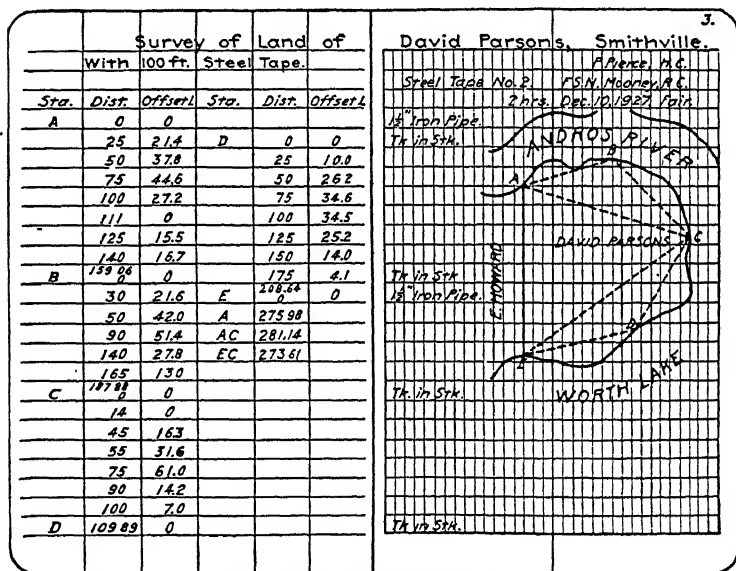 3.
Survey of Land of
With 100 ft. Steel Tape.
Sta. Dist. Offset L Sta. Dist. Offset L
A 0 0
25 21.4 D 0 0
50 37.8 25 10.0
75 44.6 50 26.2
100 27.2 75 34.6
111 0 100 34.5
125 15.5 125 25.2
140 16.7 150 14.0
B 159.06 0 0 175 4.1
30 21.6 E 208.64 0 0
50 42.0 A 275.98
90 51.4 AC 281.14
140 27.8 EC 273.61
165 13.0
C 187.88 0 0
14 0
45 16.3
55 31.6
75 61.0
90 14.2
100 7.0
D 109.89 0
David Parsons, Smithville.
P. Pierce, H.C.
Steel Tape No. 2. F.S.N. Mooney, R.C.
2 hrs. Dec. 10, 1927. Fair.
1½" Iron Pipe.
Tk. in Stk.
ANDROS RIVER
B
A
DAVID PARSONS C
E. HOWARD
Tk. in Stk.
1½" Iron Pipe.
D
E
WORTH LAKE
Tk. in Stk.
Tk. in Stk.